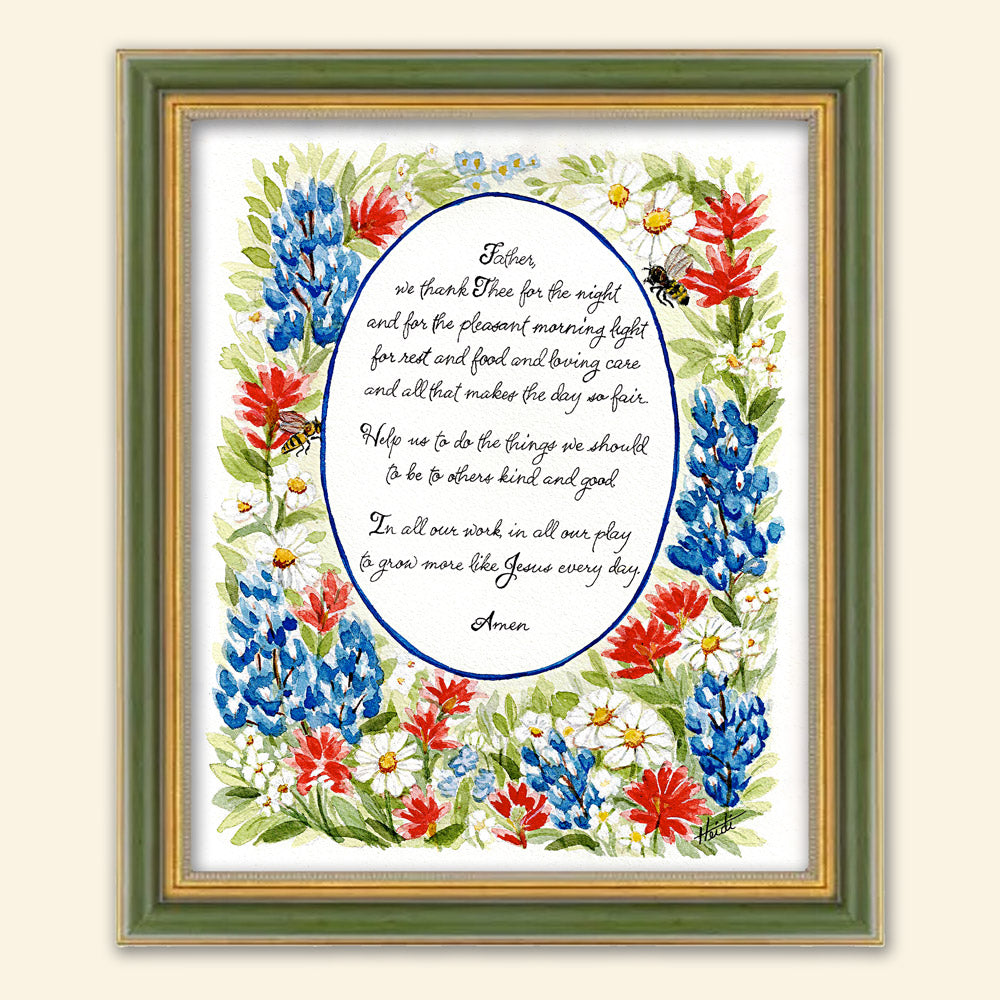 Father,
we thank Thee for the night
and for the pleasant morning light
for rest and food and loving care
and all that makes the day so fair.
Help us to do the things we should
to be to others kind and good
In all our work, in all our play
to grow more like Jesus every day.
Amen
Heidi